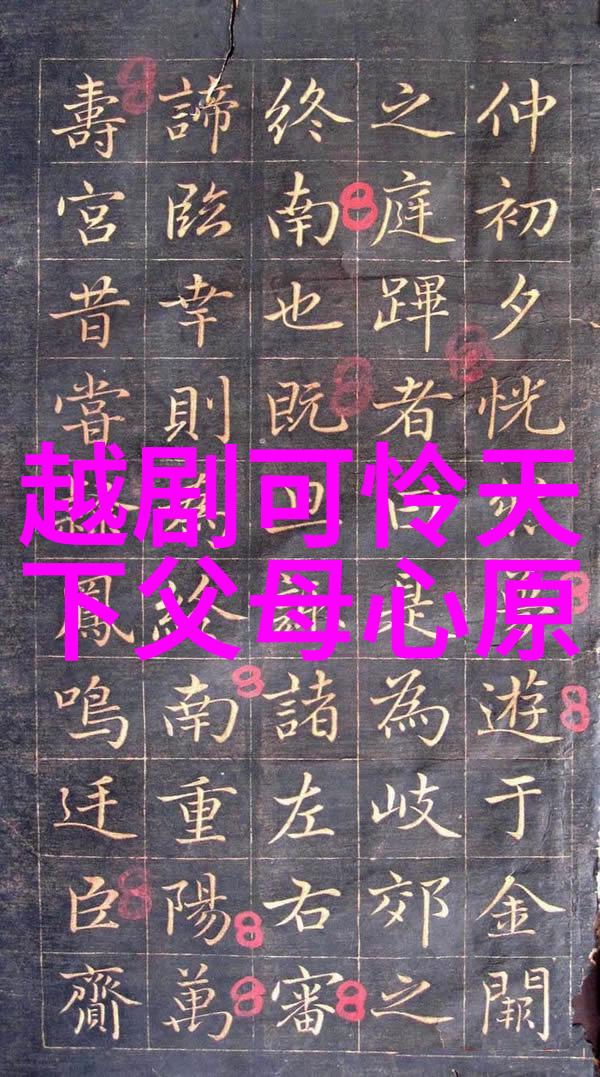 越剧可怜天
下父母心原
仲初夕恍遊于金闕
之庭蹕者曰是為岐郊之
終南也既諸左右審
諦臨幸則為終南重陽萬
壽宮昔嘗鳳鳴廷臣齎